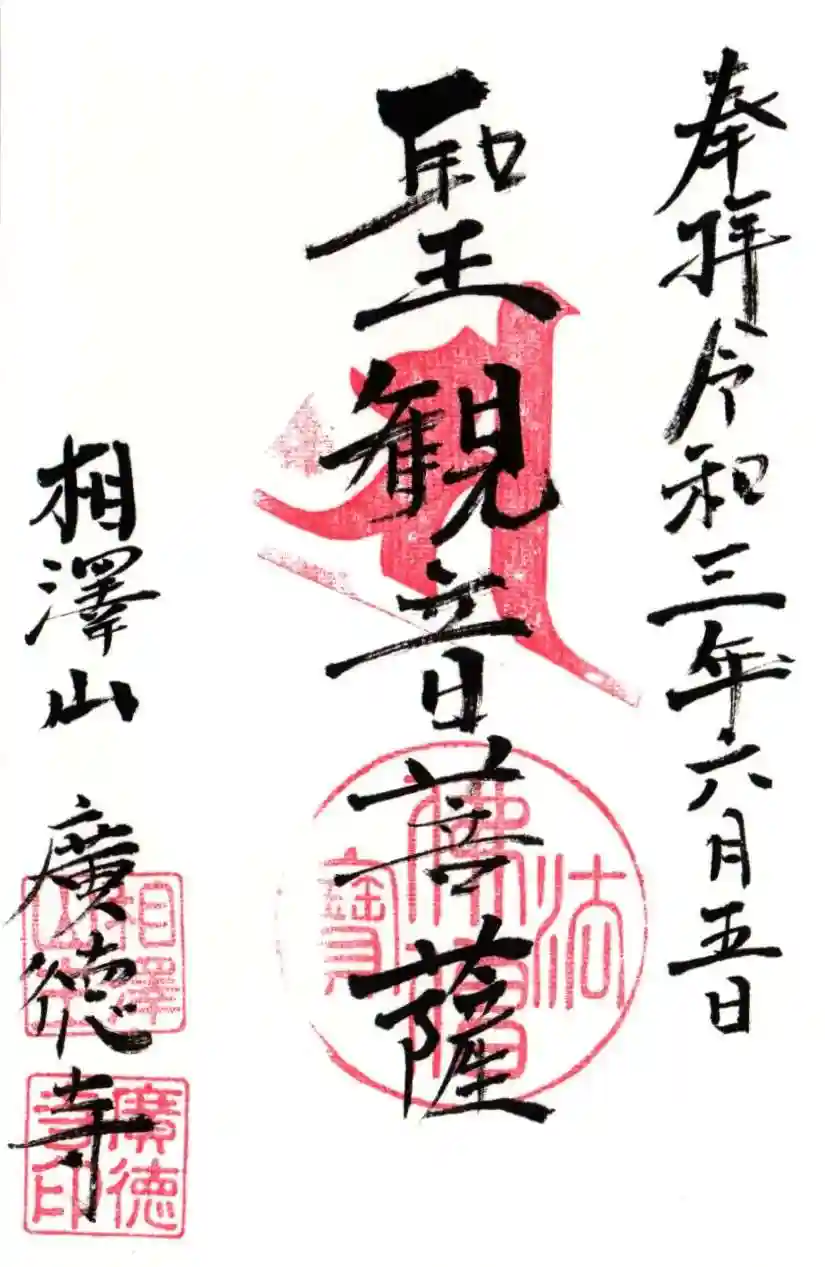 奉拝令和三年六月五日
聖観音菩薩
相澤山 廣徳寺
佛法僧寳
相澤
廣徳
寺印